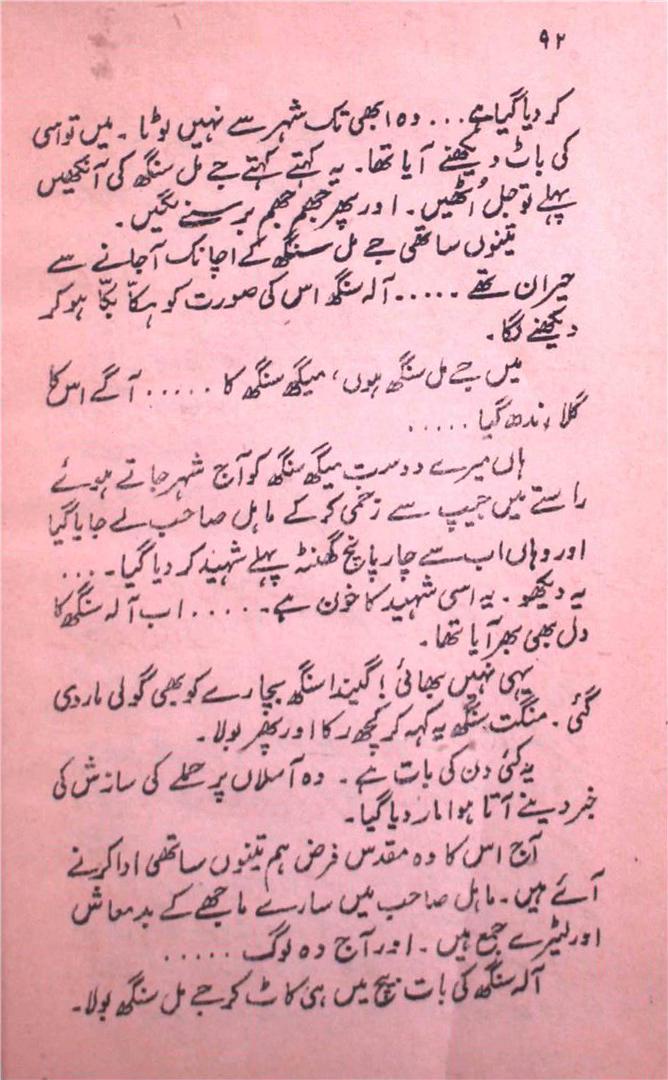 ۹۲
کر دیا گیا ہے... وہ ابھی تک شہر سے نہیں لوٹا۔ میں تو اسی
کی باٹ دیکھنے آیا تھا۔ یہ کہتے کہتے جے مل سنگھ کی آنکھیں
پہلے تو جل اُٹھیں۔ اور پھر جھم جھم برسنے لگیں۔
تینوں ساتھی جے مل سنگھ کے اچانک آجانے سے
حیران تھے ..... آلہ سنگھ اس کی صورت کو ہکّا بکّا ہو کر
دیکھنے لگا۔
میں جے مل سنگھ ہوں، میگھ سنگھ کا ..... آگے اس کا
گلا رندھ گیا .....
ہاں میرے دوست میگھ سنگھ کو آج شہر جاتے ہوئے
راستے میں جیپ سے زخمی کرکے ماہل صاحب لے جایا گیا
اور وہاں اب سے چار پانچ گھنٹہ پہلے شہید کر دیا گیا۔...
یہ دیکھو۔ یہ اسی شہید کا خون ہے۔ ..... اب آلہ سنگھ کا
دل بھی بھر آیا تھا۔
یہی نہیں بھائی! گیندا سنگھ بچارے کو بھی گولی مار دی
گئی۔ منگت سنگھ یہ کہہ کر کچھ رکا اور پھر بولا۔
یہ کئی دن کی بات ہے۔ وہ آسلاں پر حملے کی سازش کی
خبر دینے آتا ہوا مار دیا گیا۔
آج اس کا وہ مقدس فرض ہم تینوں ساتھی ادا کرنے
آئے ہیں۔ ماہل صاحب میں سارے ماجھے کے بدمعاش
اور لٹیرے جمع ہیں۔ اور آج وہ لوگ .....
آلہ سنگھ کی بات بیچ میں ہی کاٹ کر جے مل سنگھ بولا۔